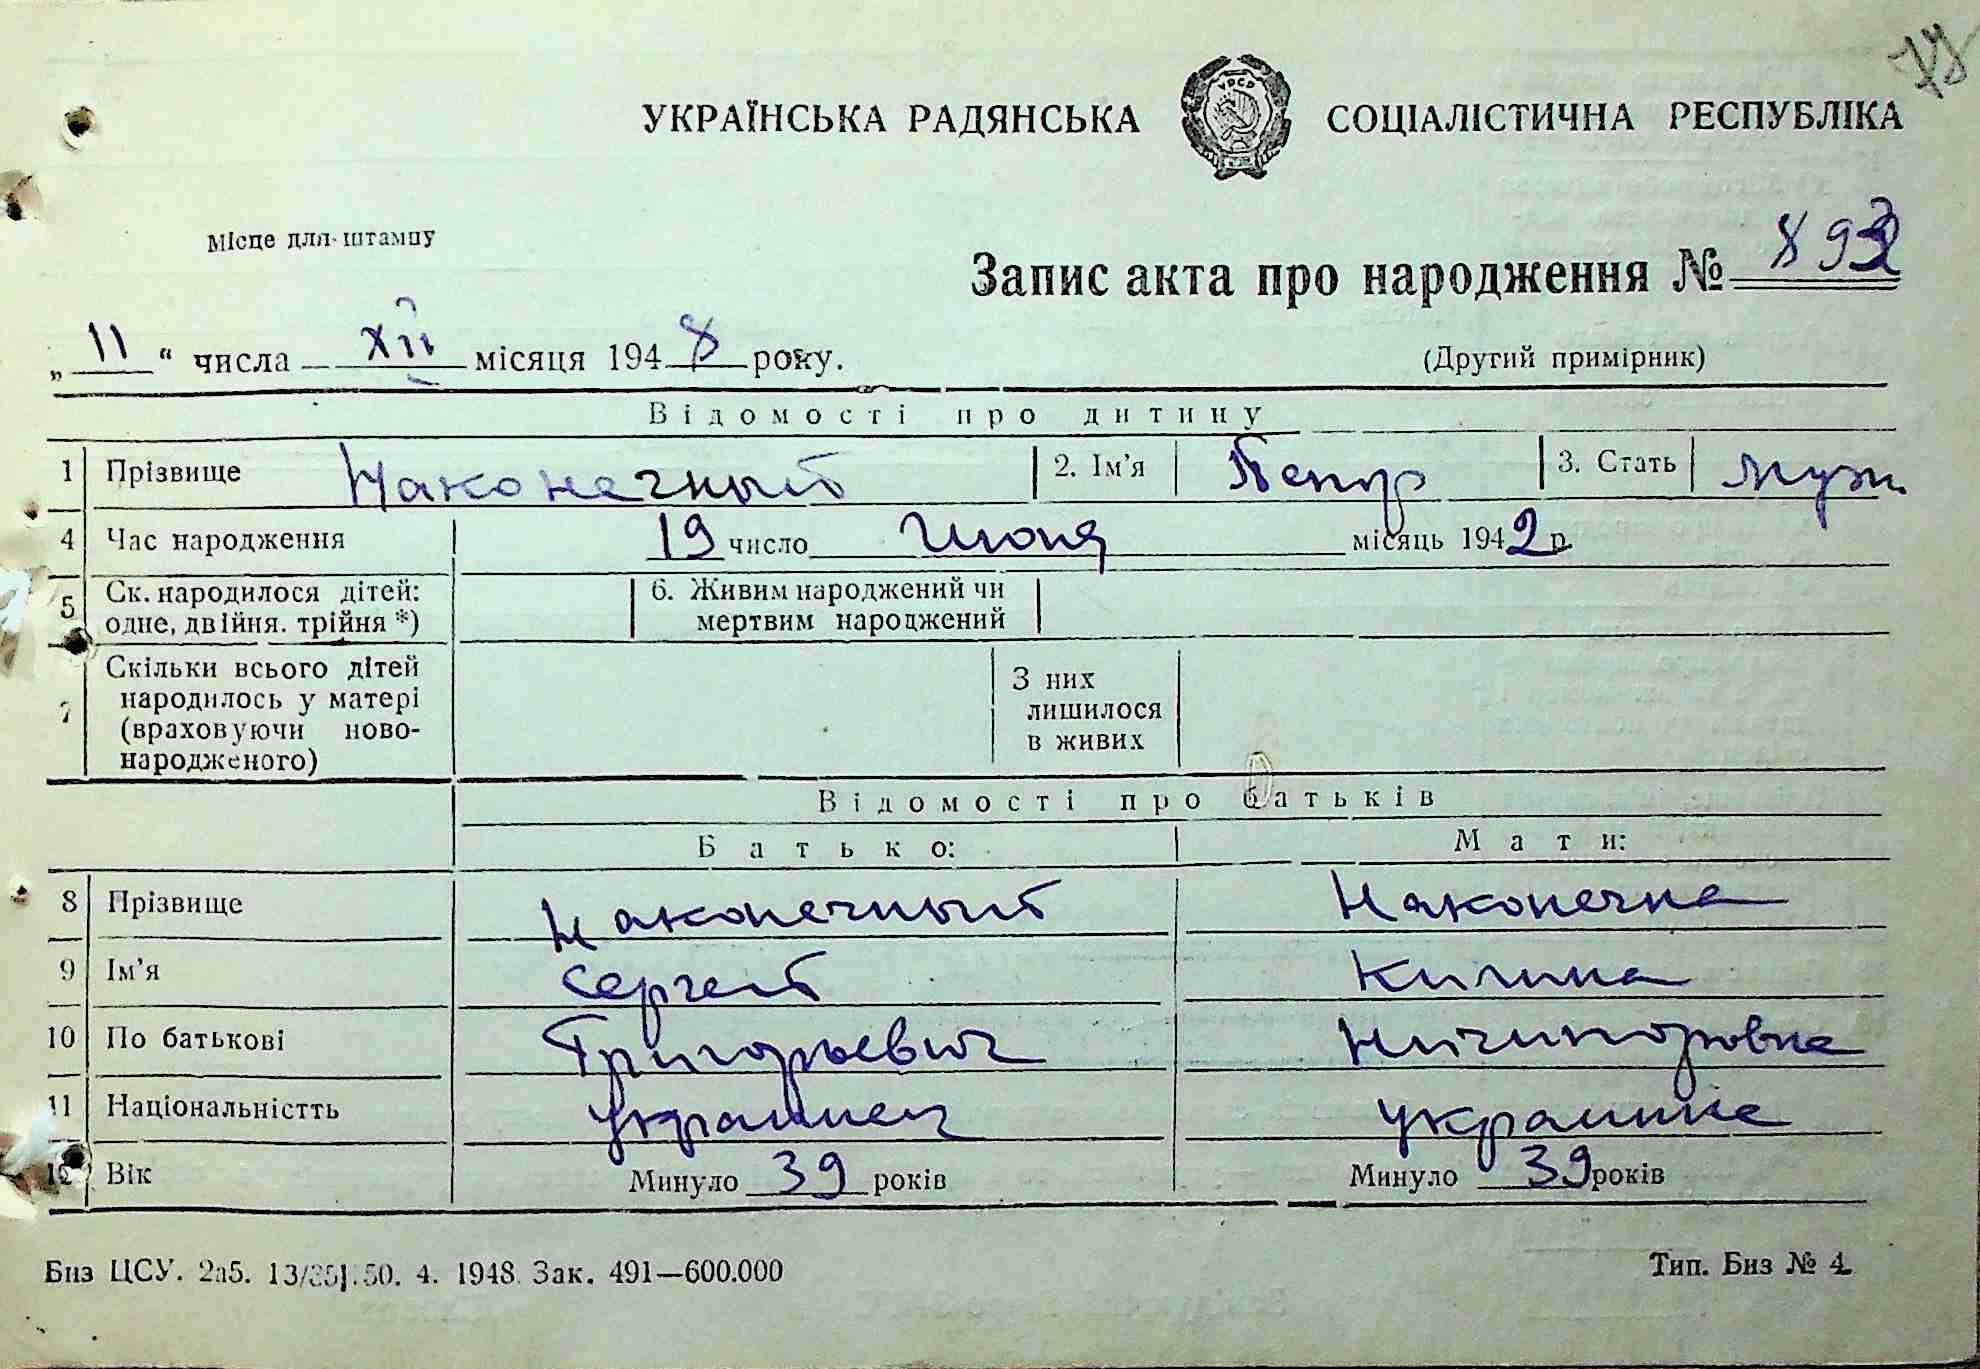 УКРАЇНСЬКА РАДЯНСЬКА СОЦІАЛІСТИЧНА РЕСПУБЛІКА
Місце для штампу
Запис акта про народження № 893
„11“ числа XII місяця 1948 року.
(Другий примірник)
Відомості про дитину
1 Прізвище Наконечный 2. Ім’я Петр 3. Стать муж
4 Час народження 19 число Июня місяць 1942 р.
5 Ск. народилося дітей: 6. Живим народжений чи
одне, двійня. трійня *) мертвим народжений
7 Скільки всього дітей З них
народилось у матері лишилося
(враховуючи ново- в живих
народженого)
Відомості про батьків
Батько: Мати:
8 Прізвище Наконечный Наконечна
9 Ім’я Сергей Килина
10 По батькові Григорьевич Ничипоровна
11 Національністть украинец украинка
12 Вік Минуло 39 років Минуло 39 років
Биз ЦСУ. 2а5. 50. 4. 1948. Зак. 491—600.000 Тип. Биз № 4.